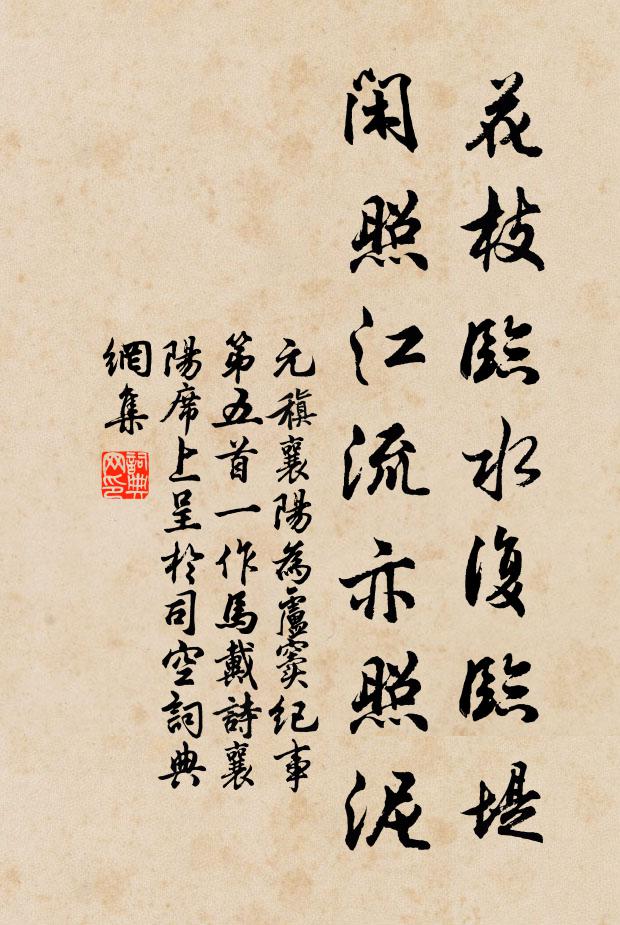 花枝臨水復臨堤
閑照江流亦照泥
元稹襄陽為盧竇紀事
第五首一作馬戴詩襄
陽席上呈於司空詞典
網集
詞典網印